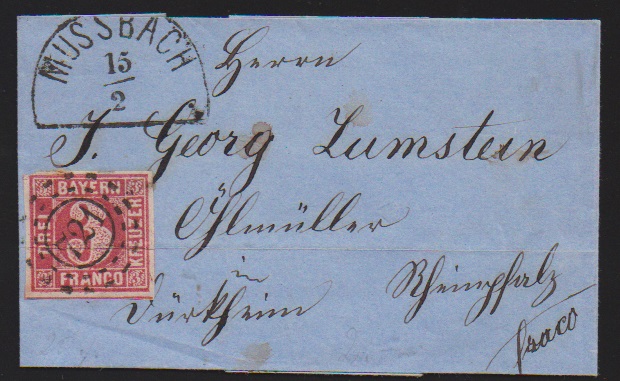 MUSSBACH
15
2
Herrn
J. Georg Lumstein
Öhlmüller
in
Dürkheim Rheinpfalz
fraco
BAYERN
DREI
3
KREUZER
FRANCO